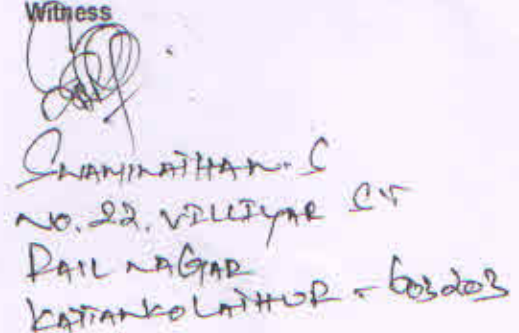 Witness
SWAMINATHAN. S
NO. 22. VILLIYAR ST
RAIL NAGAR
KATTANKOLATHUR - 603203